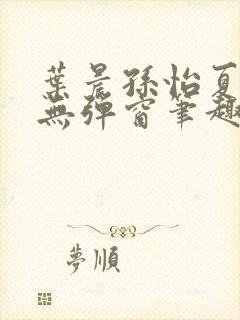 葉晨孫怡夏
無彈窗筆趣
夢順